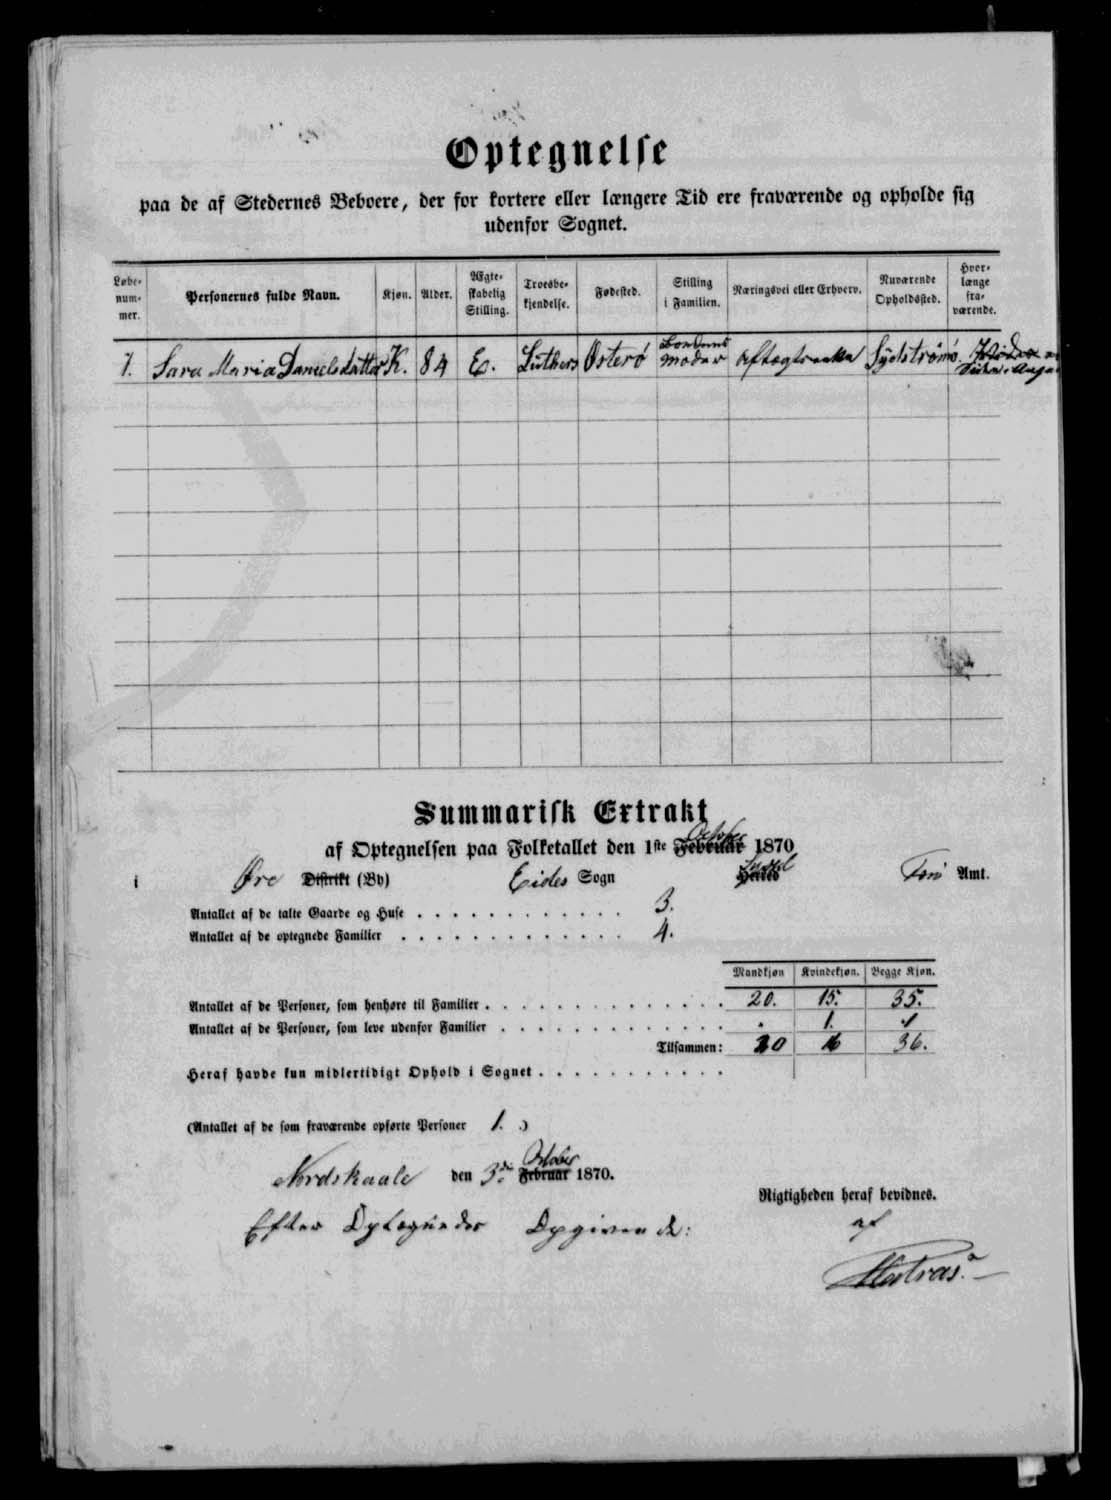 Optegnelse
paa de af Stedernes Beboere, der for kortere eller længere Tid ere fraværende og opholde sig
udenfor Sognet.
Løbe-
num-
mer.
Personernes fulde Navn.
Kjøn.
Alder.
Ægte-
skabelig
Stilling.
Troesbe-
kjendelse.
Fødested.
Stilling
i Familien.
Næringsvei eller Erhverv.
Nuværende
Opholdssted.
Hvor-
længe
fra-
værende.
1. Sara Maria Danielsdatter K. 84 E. Luthers Østerö Moder Sydströmö.
Summarisk Extrakt
af Optegnelsen paa Folketallet den 1ste Februar October 1870
i Øre Distrikt (By) Eides Sogn Herred Færö Amt.
Antallet af de talte Gaarde og Huse 3.
Antallet af de optegnede Familier 4.
Mandkjøn Kvindekjøn. Begge Kjøn.
Antallet af de Personer, som henhøre til Familier 20. 15. 35.
Antallet af de Personer, som leve udenfor Familier . 1. 1
Tilsammen: 20 16 36.
Heraf havde kun midlertidigt Ophold i Sognet
(Antallet af de som fraværende opførte Personer 1. )
Nordskaale den 3die Februar October 1870.
Rigtigheden heraf bevidnes.
Efter Opgivende: af